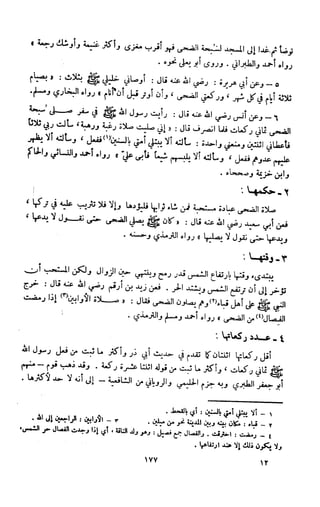 توضأ ثم غدا إلى المسجد لسبحة الضحى فهو أقرب مغزى وأكثر غنيمة وأوشك رجعة »
رواه أحمد والطبراني . وروى أبو يعلى نحوه .
٥ - وعن أبي هريرة : رضي الله عنه قال : أوصاني خليلي ﷺ بثلاث : « بصيام
ثلاثة أيام في كل شهر ، وركعتي الضحى ، وأن أوتر قبل أن أنام » رواه البخاري ومسلم .
٦ - وعن أنس رضي الله عنه قال : رأيت رسول الله ﷺ في سفر صلى سبحة
الضحى ثماني ركعات فلما انصرف قال : « إني صليت صلاة رغبة ورهبة ، سألت ربي ثلاثا
فأعطاني اثنتين ومنعني واحدة : سألته ألا يبتلي أمتي بالسنين (١) ففعل ، وسألته ألا يظهر
عليهم عدوهم ففعل ، وسألته ألا يلبسهم شيعاً فأبى علي » رواه أحمد والنسائي والحاكم
وابن خزيمة وصححاه .
٢ - حكمها :
صلاة الضحى عبادة مستحبة فمن شاء ثوابها فليؤدها وإلا فلا تثريب عليه في تركها ،
فعن أبي سعيد رضي الله عنه قال : « كان ﷺ يصلي الضحى حتى نقول لا يدعها ،
ويدعها حتى نقول لا يصليها » رواه الترمذي وحسنه .
٣ - وقتها :
يبتدىء وقتها بارتفاع الشمس قدر رمح وينتهي حين الزوال ولكن المستحب أن
تؤخر إلى أن ترتفع الشمس ويشتد الحر . فعن زيد بن أرقم رضي الله عنه قال : خرج
النبي ﷺ على أهل قباء (٢) وهم يصلون الضحى فقال : « صلاة الأوابين (٣) إذا رمضت
الفصال (٤) من الضحى » رواه أحمد ومسلم والترمذي .
٤ - عدد ركعاتها :
أقل ركعاتها اثنتان كما تقدم في حديث أبي ذر وأكثر ما ثبت من فعل رسول الله
ﷺ ثماني ركعات ، وأكثر ما ثبت من قوله اثنتا عشرة ركعة . وقد ذهب قوم - منهم
أبو جعفر الطبري وبه جزم الحليمي والروياني من الشافعية - إلى أنه لا حد لأكثرها .
١ - ألا يبتلي أمتي بالسنين : أي بالقحط .
٢ - قباء : مكان بينه وبين المدينة نحو من ميلين . ٣ - الأوابين : الراجعين إلى الله .
٤ - رمضت : احترقت . والفصال جمع فصيل : وهو ولد الناقة ، أي إذا وجدت الفصال حر الشمس ،
ولا يكون ذلك إلا عند ارتفاعها .
١٧٧ ١٢